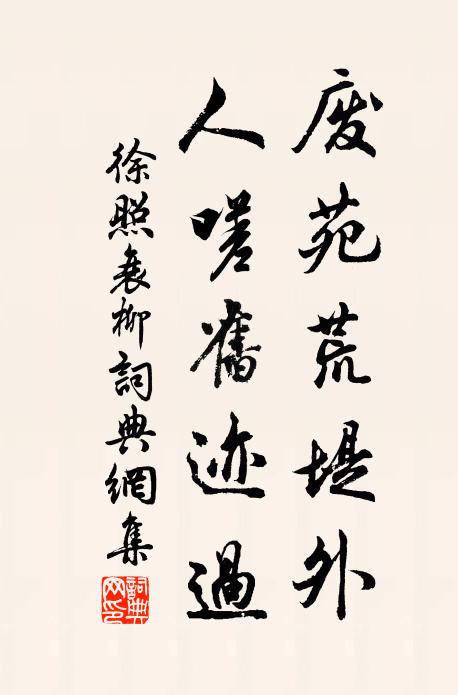 废苑荒堤外
人嗟舊迹過
徐照衰柳詞典網集
詞典网印